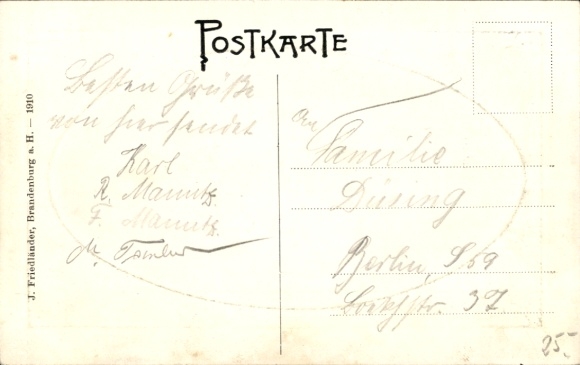 POSTKARTE
J. Friedländer, Brandenburg a. H. — 1910
Besten Grüße
von hier sendet
Karl
R. Mannitz
F. Mannitz
M.
An
Familie
Düsing
Berlin, S 59
37
25.-